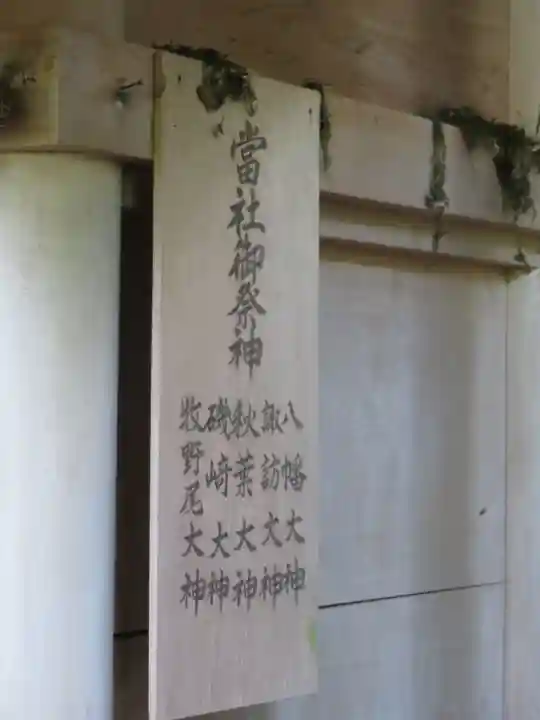 當社御祭神
八幡大神
諏訪大神
秋葉大神
磯崎大神
牧野尾大神